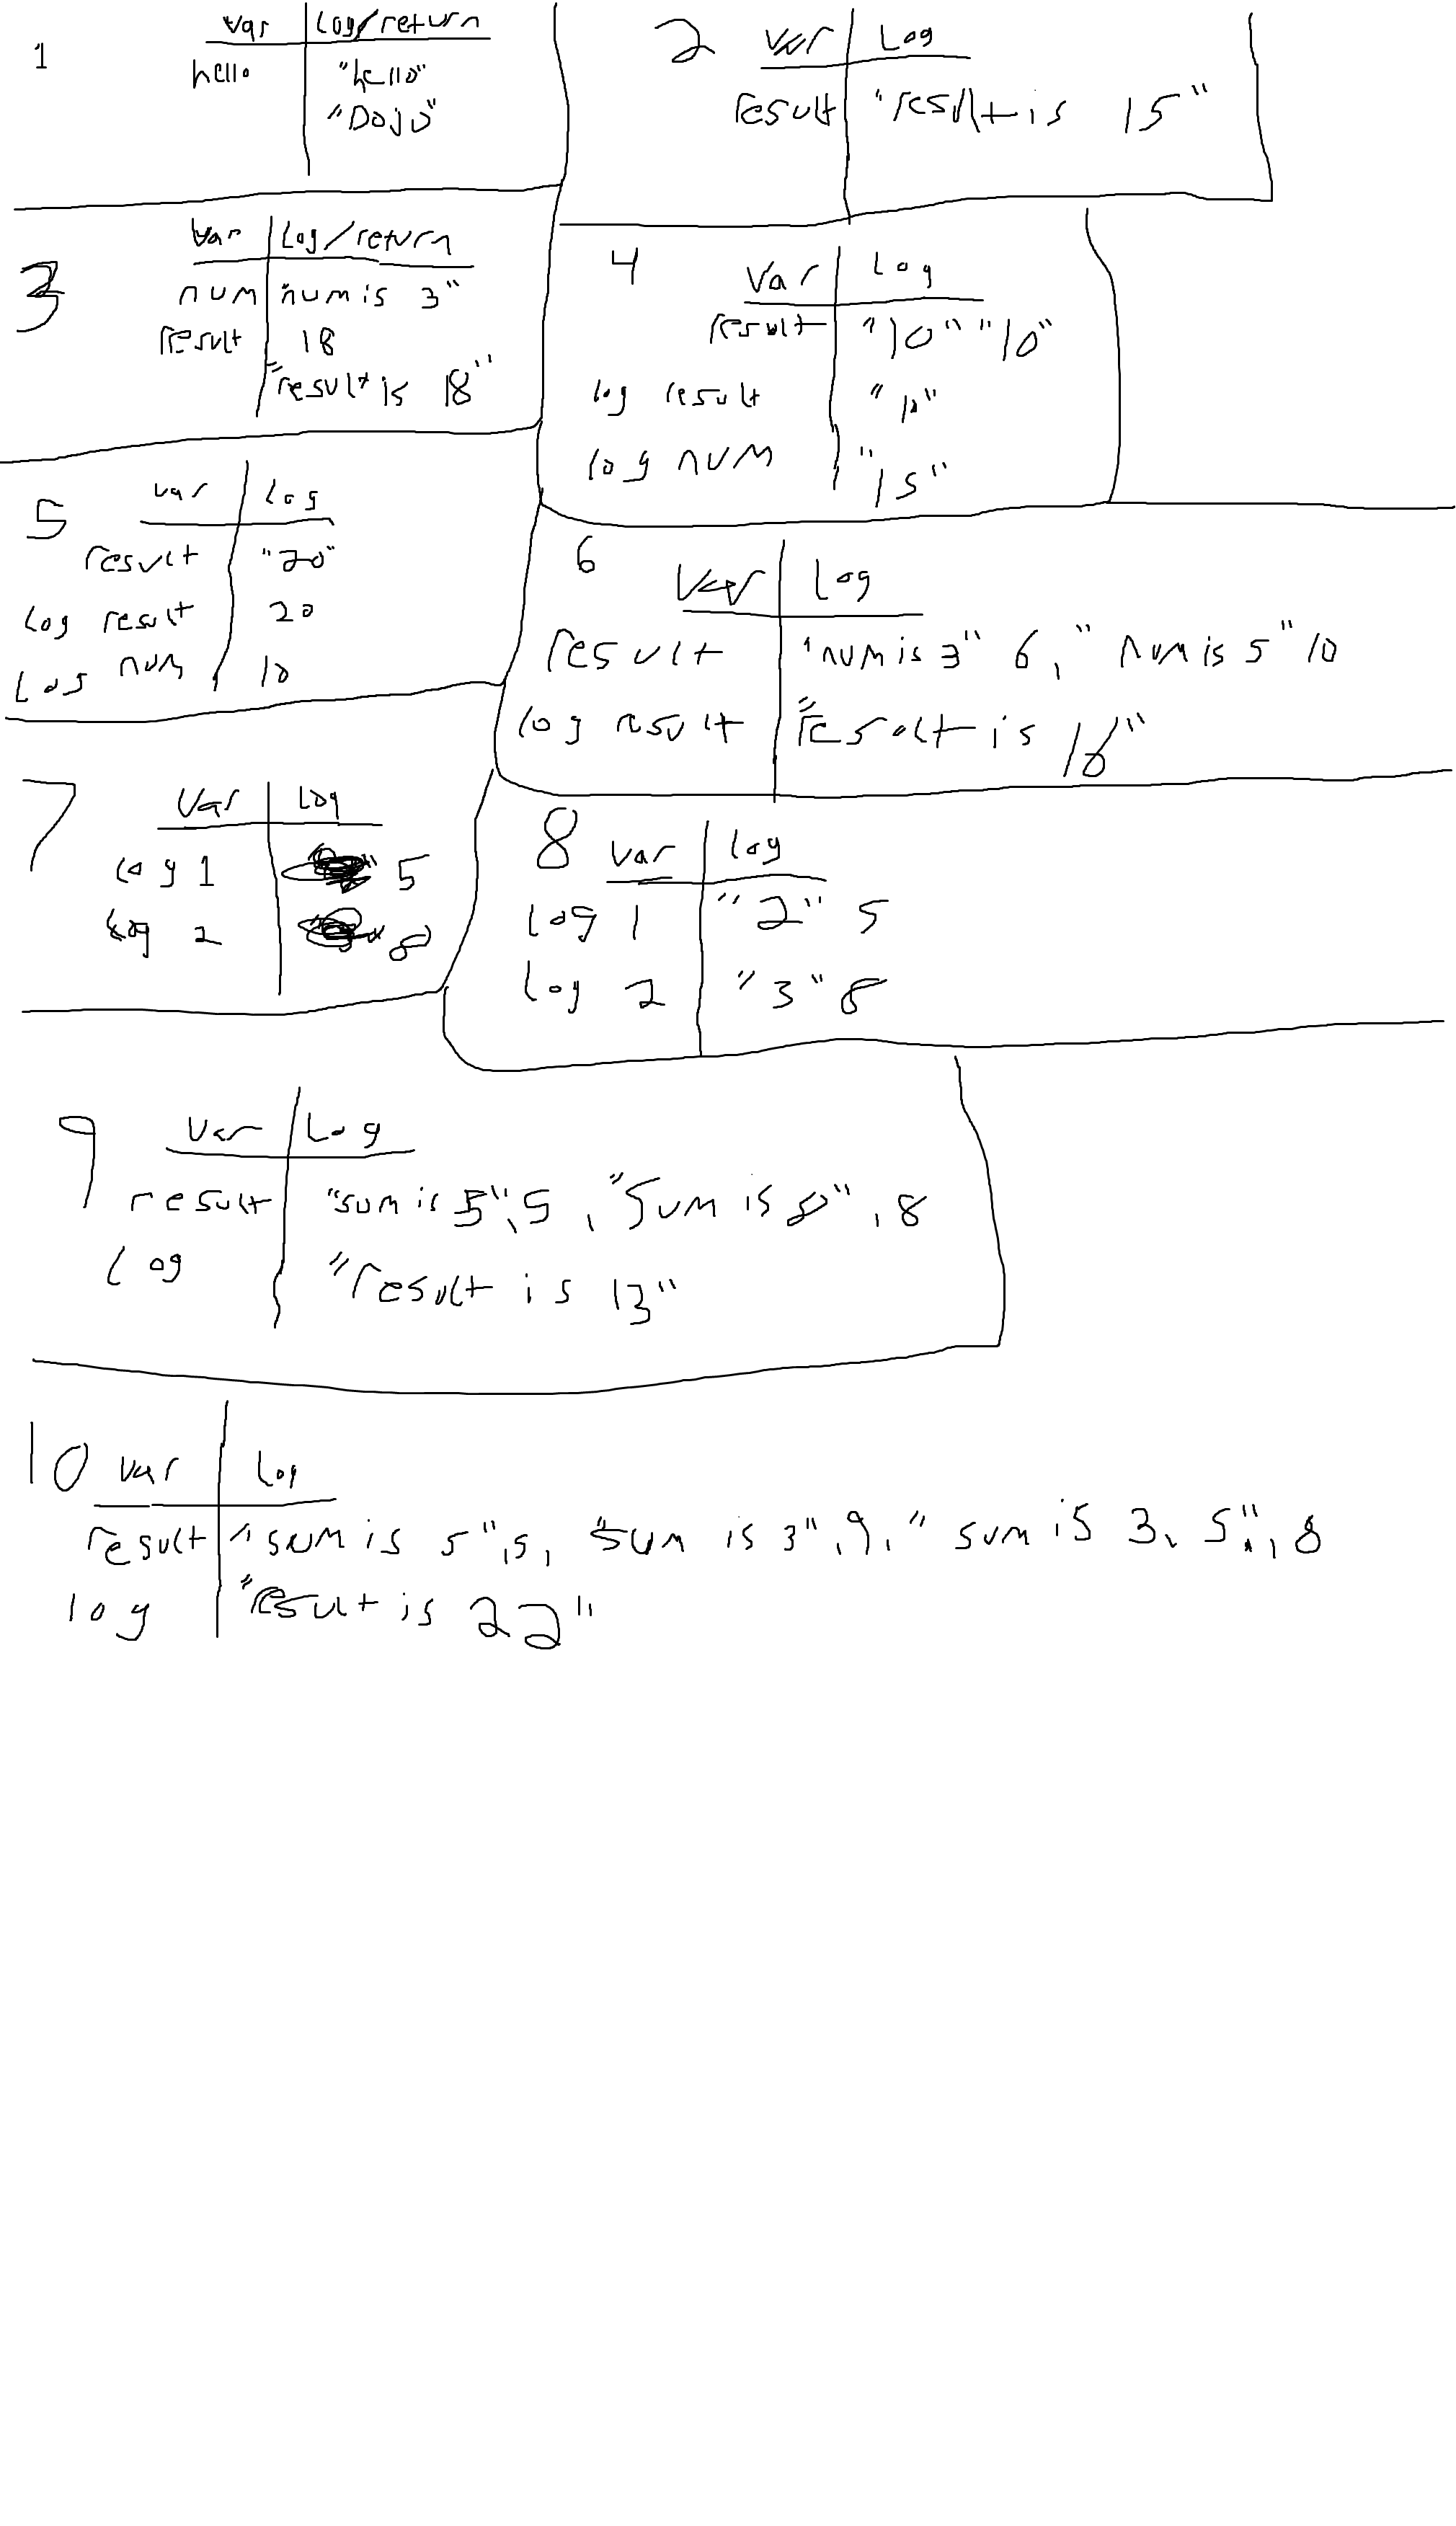 1
var Log/return
hello "hello"
"Dojo"
2
var Log
result "result is 15"
3
var Log/return
num "num is 3"
result 18
"result is 18"
4
Var Log
result "10" "10"
log result "10"
log num "15"
5
var Log
result "20"
Log result 20
Log num 10
6
Var Log
result "num is 3" 6, "num is 5" 10
log result "result is 16"
7
Var Log
log 1 5
log 2 8
8
var log
log 1 "2" 5
log 2 "3" 8
9
Var Log
result "sum is 5", 5, "Sum is 8", 8
Log "result is 13"
10
var Log
result "sum is 5", 5, "sum is 3", 9, "sum is 3, 5", 8
log "result is 22"